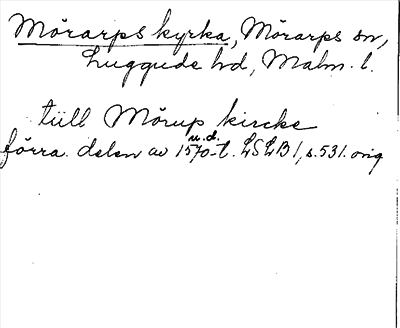 Mörarps kyrka, Mörarps sn,
Luggude hd, Malm. l.
tiill Mörup kircke
u.d.
förra delen av 1570-t. LSLB 1, s. 531. orig